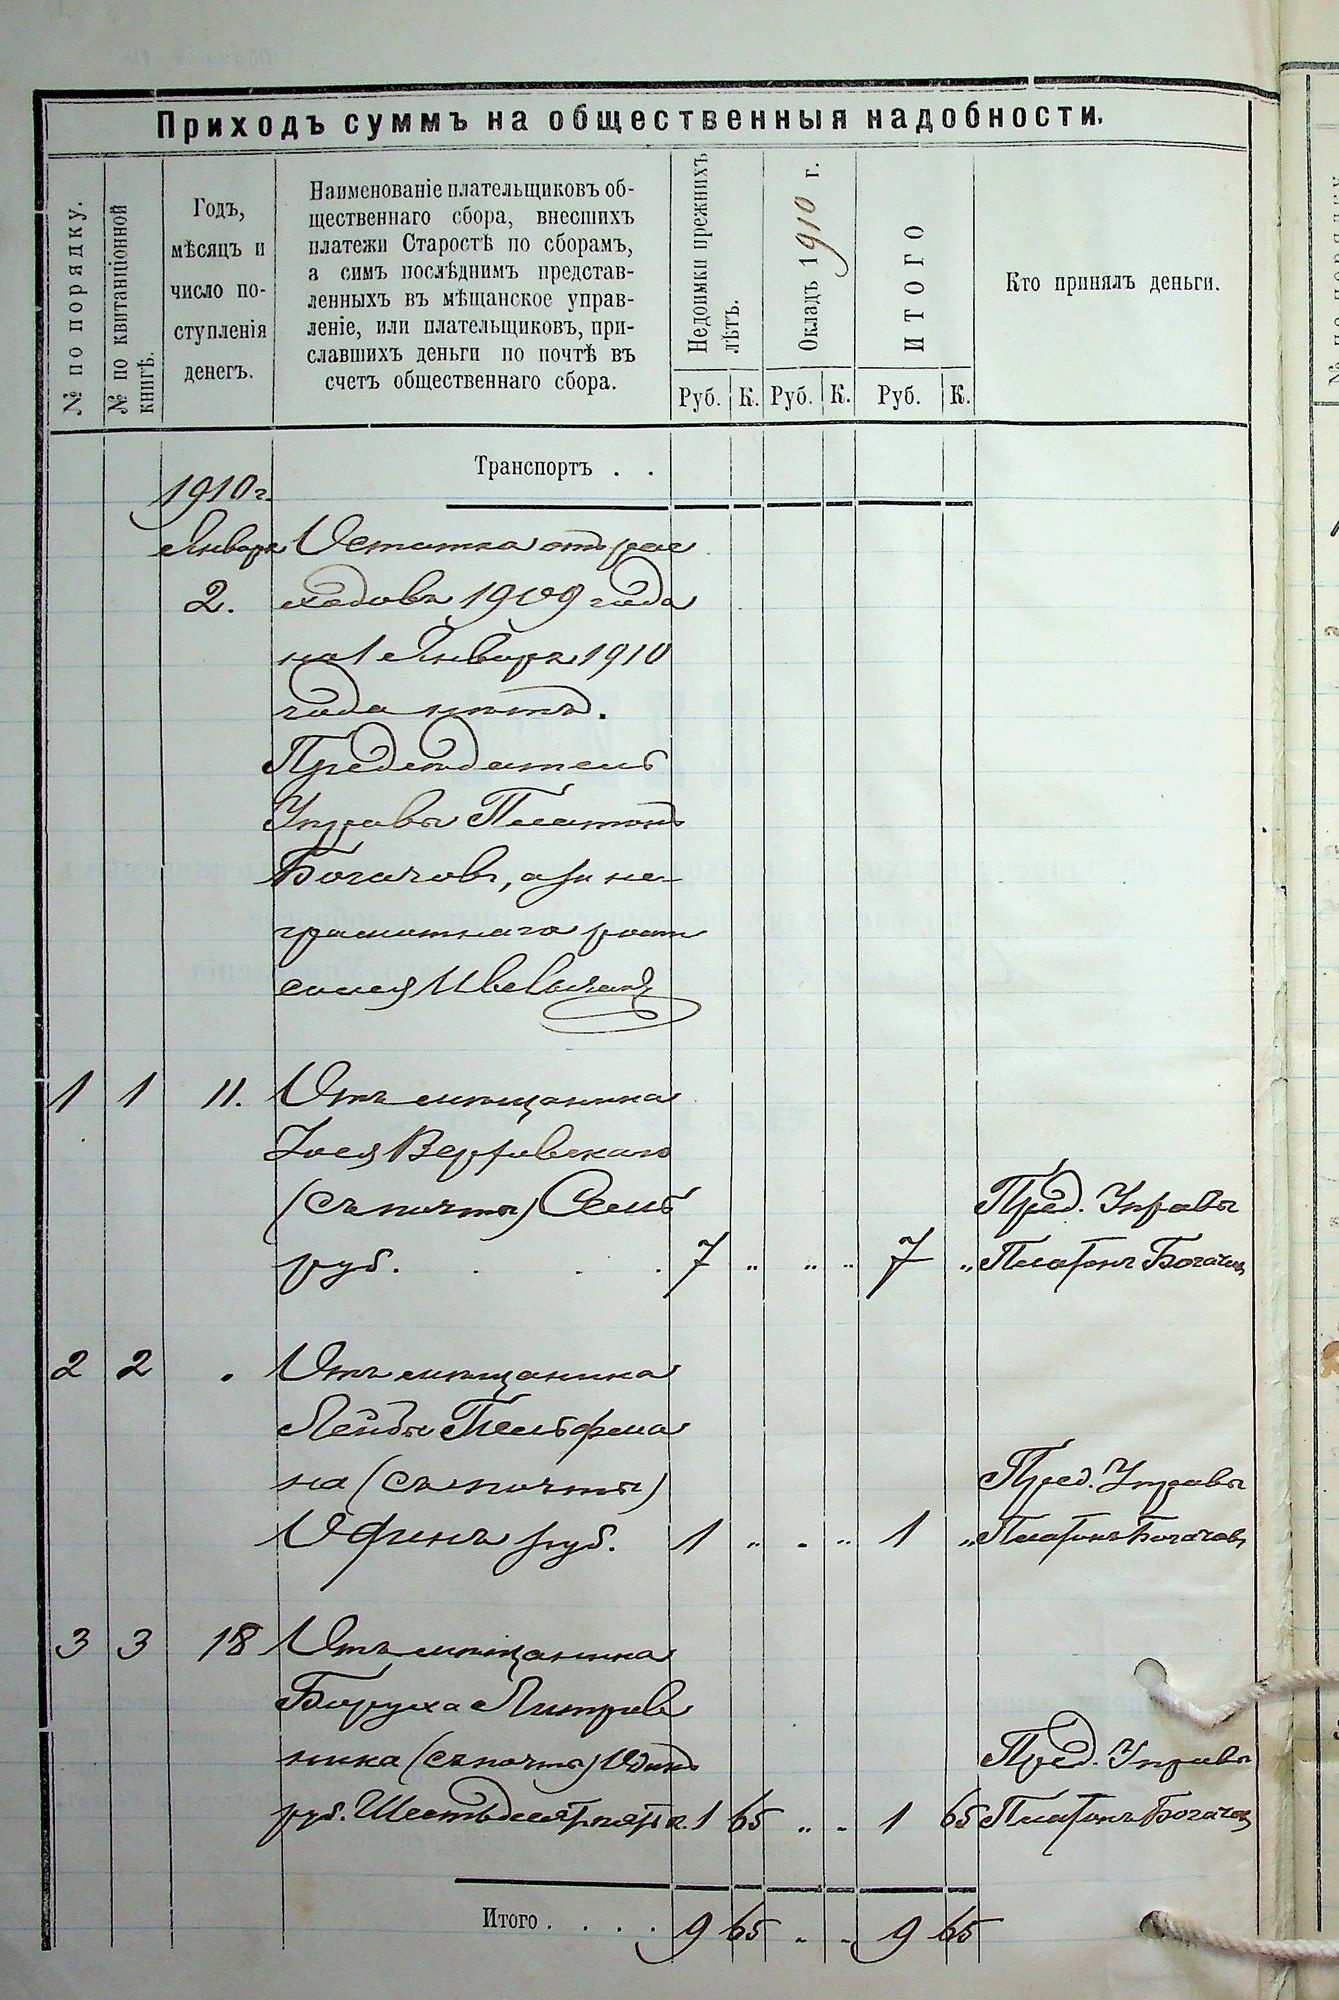 Приходъ суммъ на общественныя надобности.
№ по порядку.
№ по квитанціонной
книгѣ.
Годъ,
мѣсяцъ и
число по-
ступленія
денегъ.
Наименованіе плательщиковъ об-
щественнаго сбора, внесшихъ
платежи Старостѣ по сборамъ,
а симъ послѣднимъ представ-
ленныхъ въ мѣщанское управ-
леніе, или плательщиковъ, при-
славшихъ деньги по почтѣ въ
счетъ общественнаго сбора.
Недоимки прежнихъ
лѣтъ.
Окладъ 1910 г.
ИТОГО
Кто принялъ деньги.
Руб. К. Руб. К. Руб. К.
Транспортъ . .
1910 г.
Января Остатка отъ рас
2. ходовъ 1909 года
на 1 Января 1910
года нѣтъ.
Предсѣдатель
Управы Платонъ
Богачовъ, а за не-
грамотнаго роспи
сался
1 1 11. Отъ мѣщанина
(съ почты) Семь Пред. Управы
руб. . . . . 7 „ „ „ 7 „ Платонъ Богачовъ
2 2 . Отъ мѣщанина
Лейбы Пельфма
на (съ почты) Пред. Управы
Одинъ руб. 1 „ . „ 1 „ Платонъ Богачовъ
3 3 18 Отъ мѣщанина
Боруха Питров
ника (съ почты) Одинъ Пред. Управы
руб. Шестьдесятъ пять к. 1 65 „ „ 1 65 Платонъ Богачовъ
Итого . . . . 9 65 „ „ 9 65